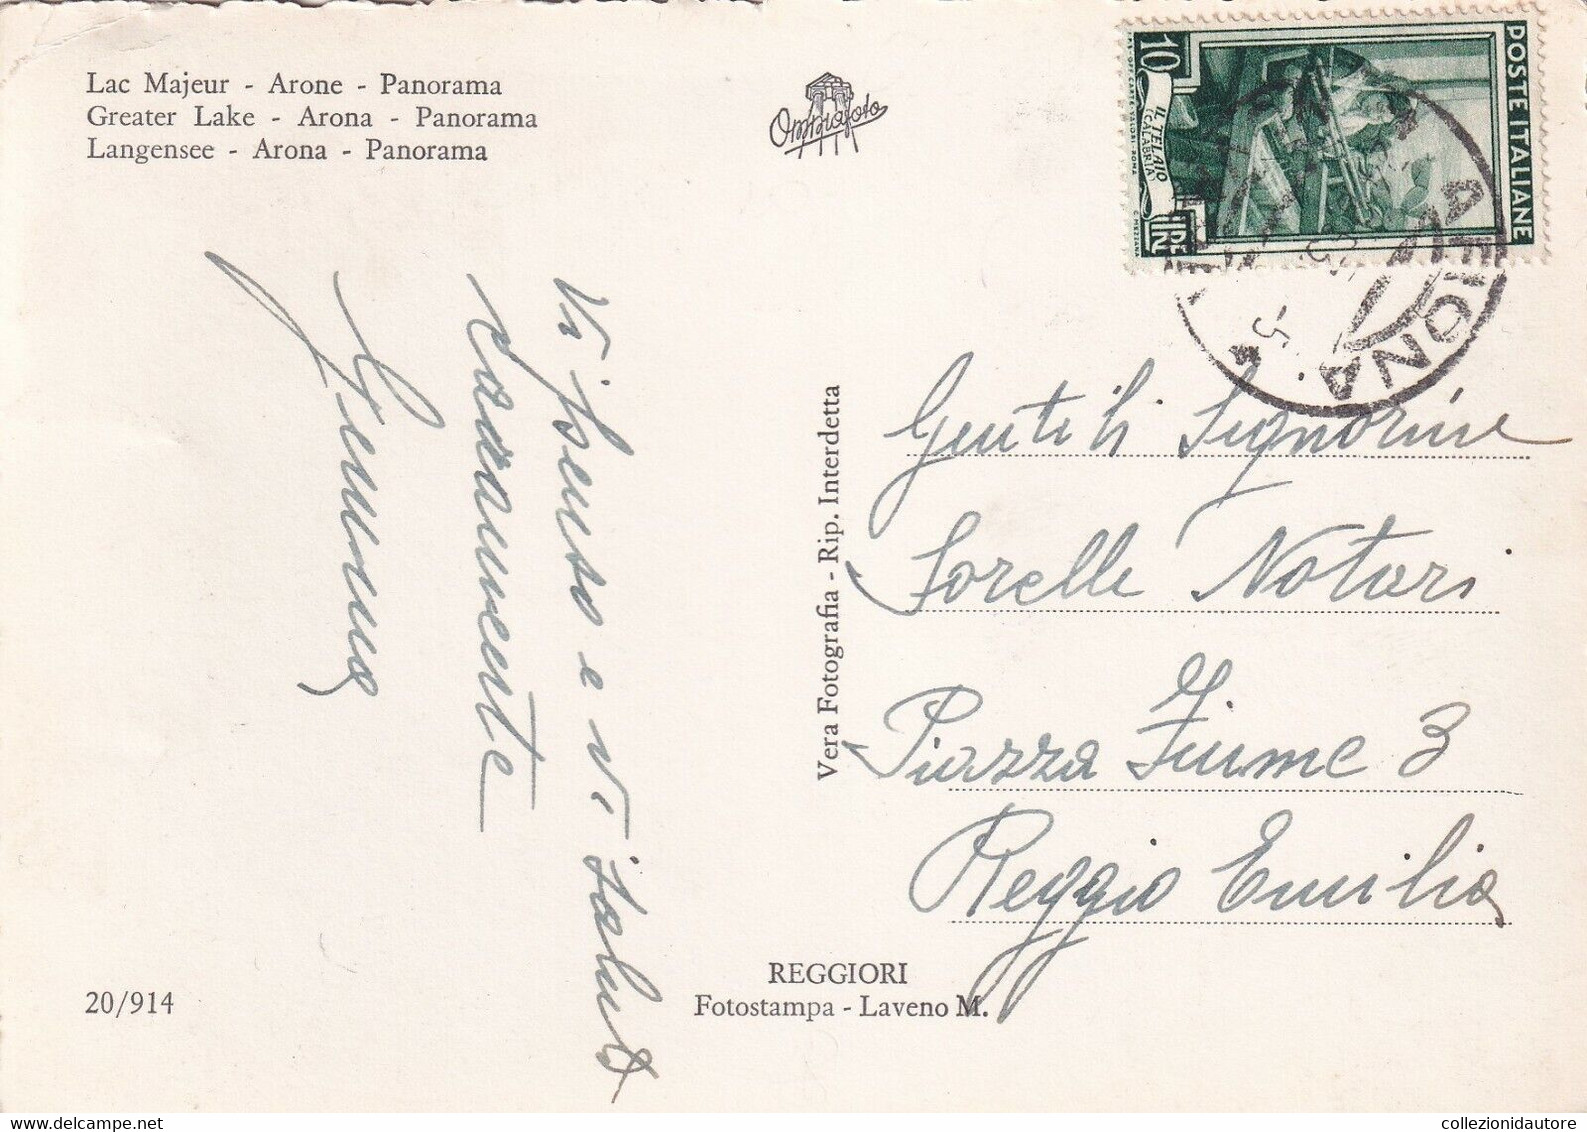 Lac Majeur - Arone - Panorama
Greater Lake - Arona - Panorama
Langensee - Arona - Panorama
Ommafoto
POSTE ITALIANE
10
LIRE
IL TELAIO
(CALABRIA)
ARONA
Vi penso e vi saluto
caramente
Gemma
Vera Fotografia - Rip. Interdetta
Gentili Signorine
Sorelle Notari
Piazza Fiume 3
Reggio Emilia
REGGIORI
Fotostampa - Laveno M.
20/914
collezionidautore.com